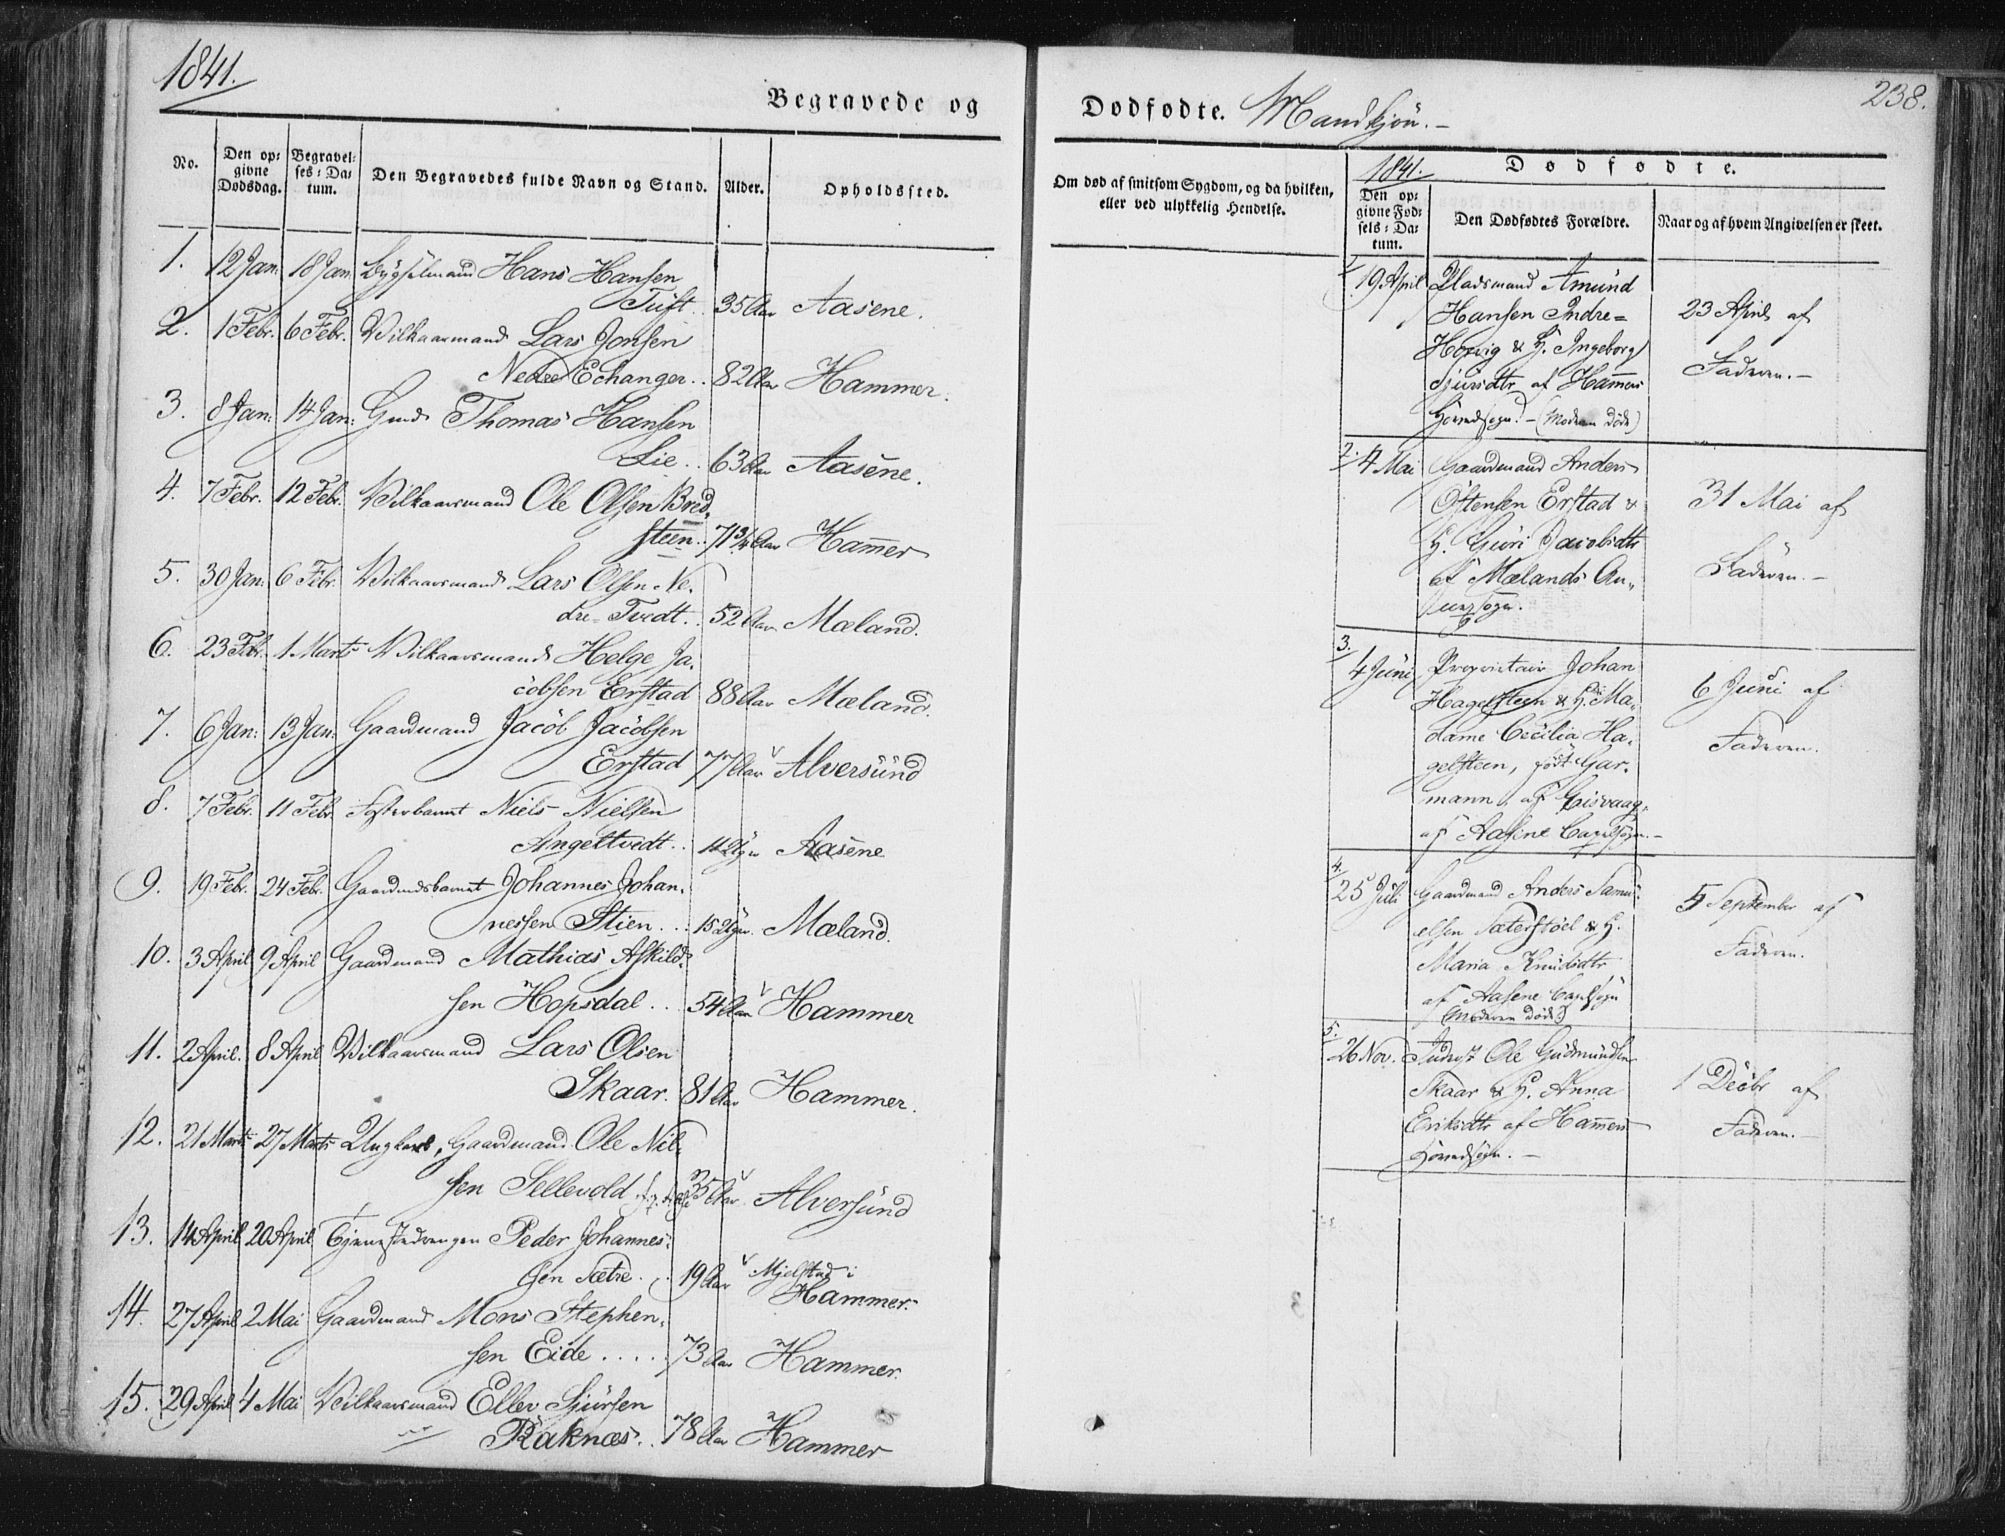 1841.
Begravede og
No.
Den op-
givne
Dødsdag.
Begravel-
ses-Da-
tum.
Den Begravedes fulde Navn og Stand.
Alder.
Opholdssted.
1. 12 Jan: 18 Jan: Bygselmand Hans Hansen
Tuft. 35 Aar Aasene.
2. 1 Febr. 6 Febr. Vilkaarmand Lars Jonsen
Nedre Echanger.. 82 Aar Hammer.
3. 8 Jan: 14 Jan: Gmd Thomas Hansen
Lie.. 63 Aar Aasene.
4. 7 Febr. 12 Febr. Vilkaarsmand Ole Olsen Bred-
steen.. 71 3/4 Aar Ham̅er
5. 30 Jan: 6 Febr. Vilkaarsmand Lars Olsen Ne-
dre-Tvedt.. 52 Aar Mæland.
6. 23 Febr. 1 Marts Vilkaarsmand Helge Ja-
cobsen Erstad 88 Aar Mæland.
7. 6 Jan: 13 Jan: Gaardmand Jacob Jacobsen
Erstad 77 Aar Alversund
8. 7 Febr. 11 Febr. Fosterbarnet Niels Nielsen
Angeltvedt.. 11 Uger Aasene
9. 19 Febr. 24 Febr. Gaardmdsbarnet Johannes Johan-
nessen Stien... 15 Uger. Mæland.
10. 3 April 9 April Gaardmand Mathias Askild-
sen Hopsdal.. 54 Aar Hammer
11. 2 April. 8 April Vilkaarsmand Lars Olsen
Skaar. 81 Aar Hammer.
12. 21 Marts 27 Marts Ungkarl, Gaardmand Ole Nil-
sen Sellevold 35 Aar Alversund
13. 14 April 20 April Tjenestedrengen Peder Johannes-
sen Sætre.. 19 Aar Mjelstad i
Hammer.
14. 27 April 2 Mai Gaardmand Mons Stephen-
sen Eide..... 73 Aar Hammer.
15. 29 April 4 Mai Vilkaarsmand Ellev Sjursen
Raknæs.. 78 Aar Hammer
Dødfødte. Mandkjøn.-
238.
Om død af smitsom Sygdom, og da hvilken,
eller ved ulykkelig Hendelse.
1841.
Dødfødte.
Den op-
givne Fød-
sels-Da-
tum.
Den Dødfødtes Forældre.
Naar og af hvem Angivelsen er skeet.
1.
19 April Pladsmand Amund
Hansen Indre= 23 April af
Hopvig & H. Ingeborg
Sjursdtr af Ham̅ers Faderen.-
Hovedsogn.-(Moderen død)
2. 4 Mai Gaardmand Anders
Østensen Erstad & 31 Mai af
H. Guri Jacobsdtr
af Mælands An- Faderen.-
nexsogn.
3.
4 Juni Proprietair Johan
Hagelsteen & H. Ma- 6 Juni af
dame Cecilia Ha-
gelsteen, født Gar- Faderen.
mann, af Eisvaag,
af Aasene Capelsogn.-
4.
25 Juli Gaardmand Anders Samu-
elsen Sæterstøel & H. 5 September af
Maria Knudsdtr Faderen.
af Aasene Capelsogn
(Moderen død)
5.
26 Nov. Inderst Ole Gudmundsen
Skaar & H. Anna 1 Decbr af
Eriksdtr af Ham̅ers Faderen.-
Hovedsogn.-